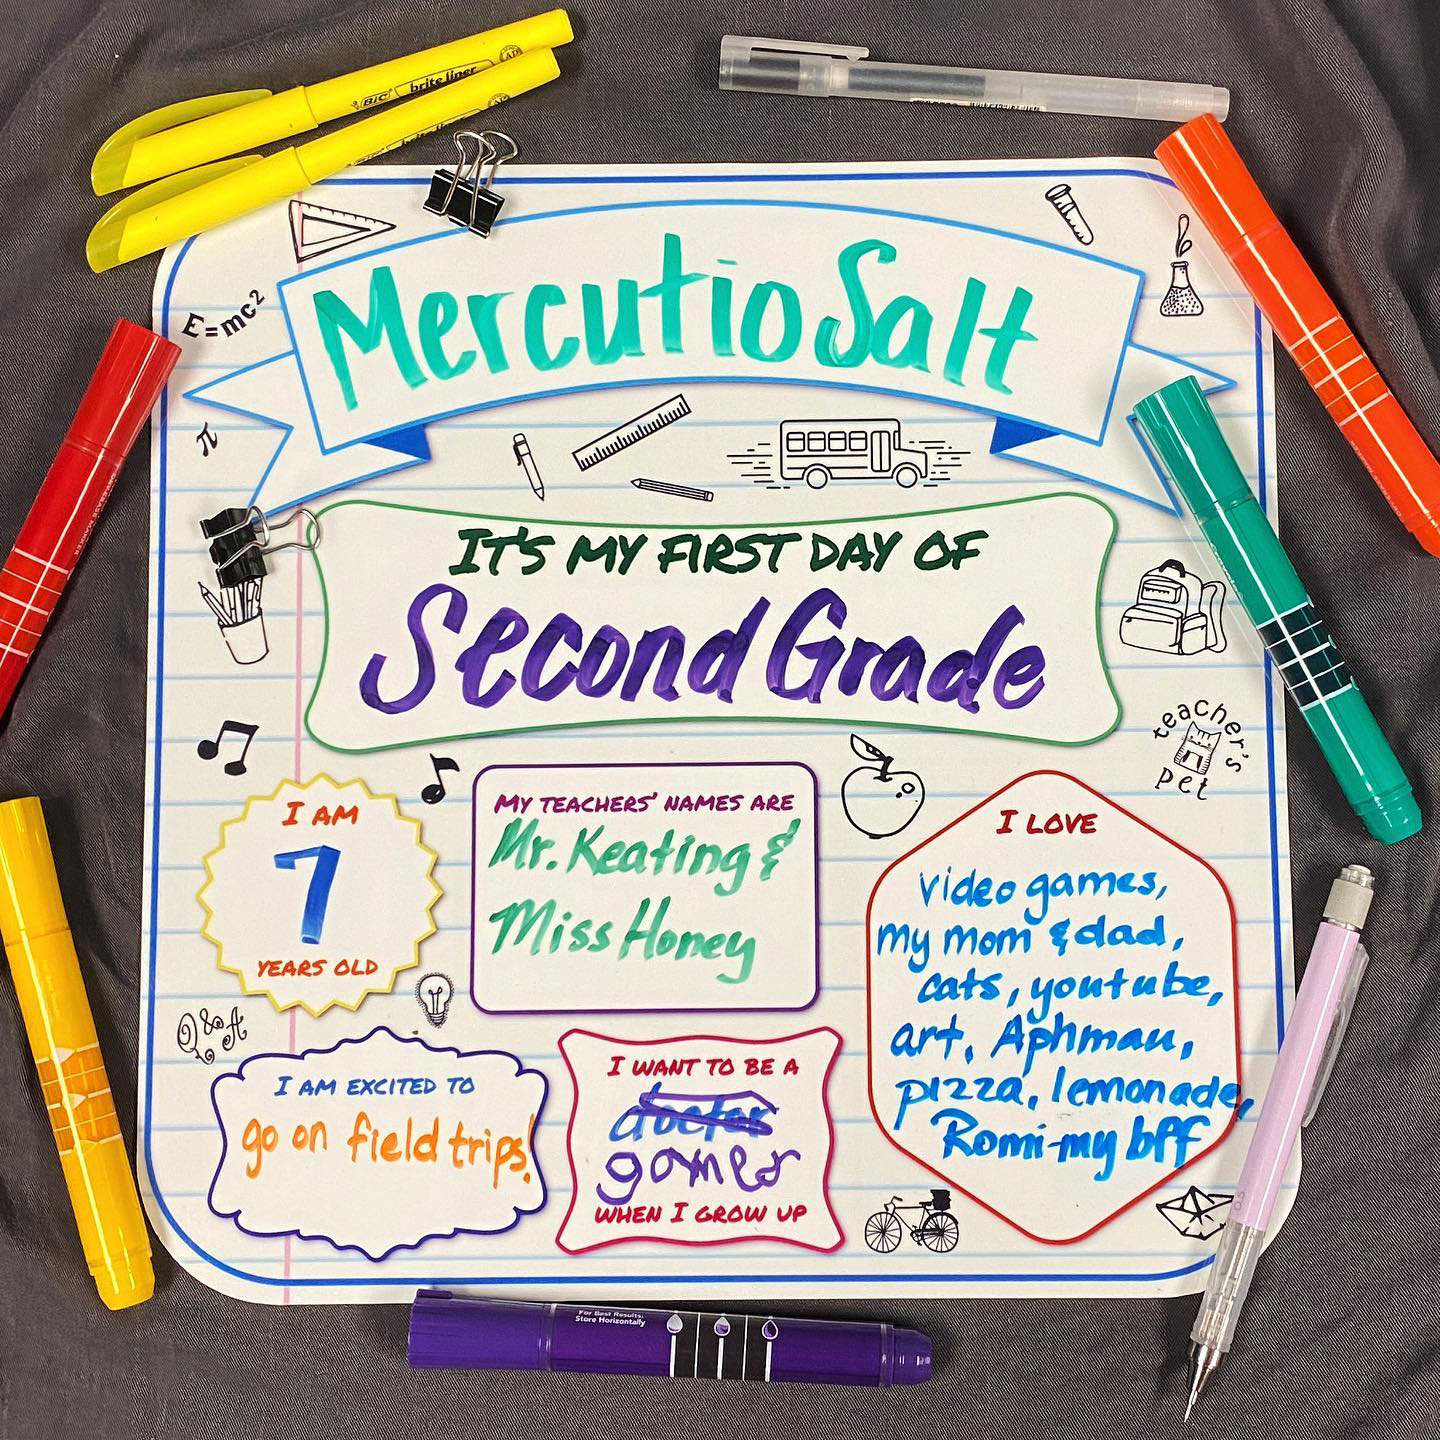 BIC brite liner
E=mc²
Mercutio Salt
π
IT'S MY FIRST DAY OF
Second Grade
teacher's
pet
I AM
7
YEARS OLD
MY TEACHERS' NAMES ARE
Mr. Keating &
Miss Honey
I LOVE
video games,
my mom & dad,
cats, youtube,
art, Aphmau,
pizza, lemonade,
Romi-my bff
Q&A
I AM EXCITED TO
go on field trips!
I WANT TO BE A
doctor
gamer
WHEN I GROW UP
For Best Results:
Store Horizontally
0.5